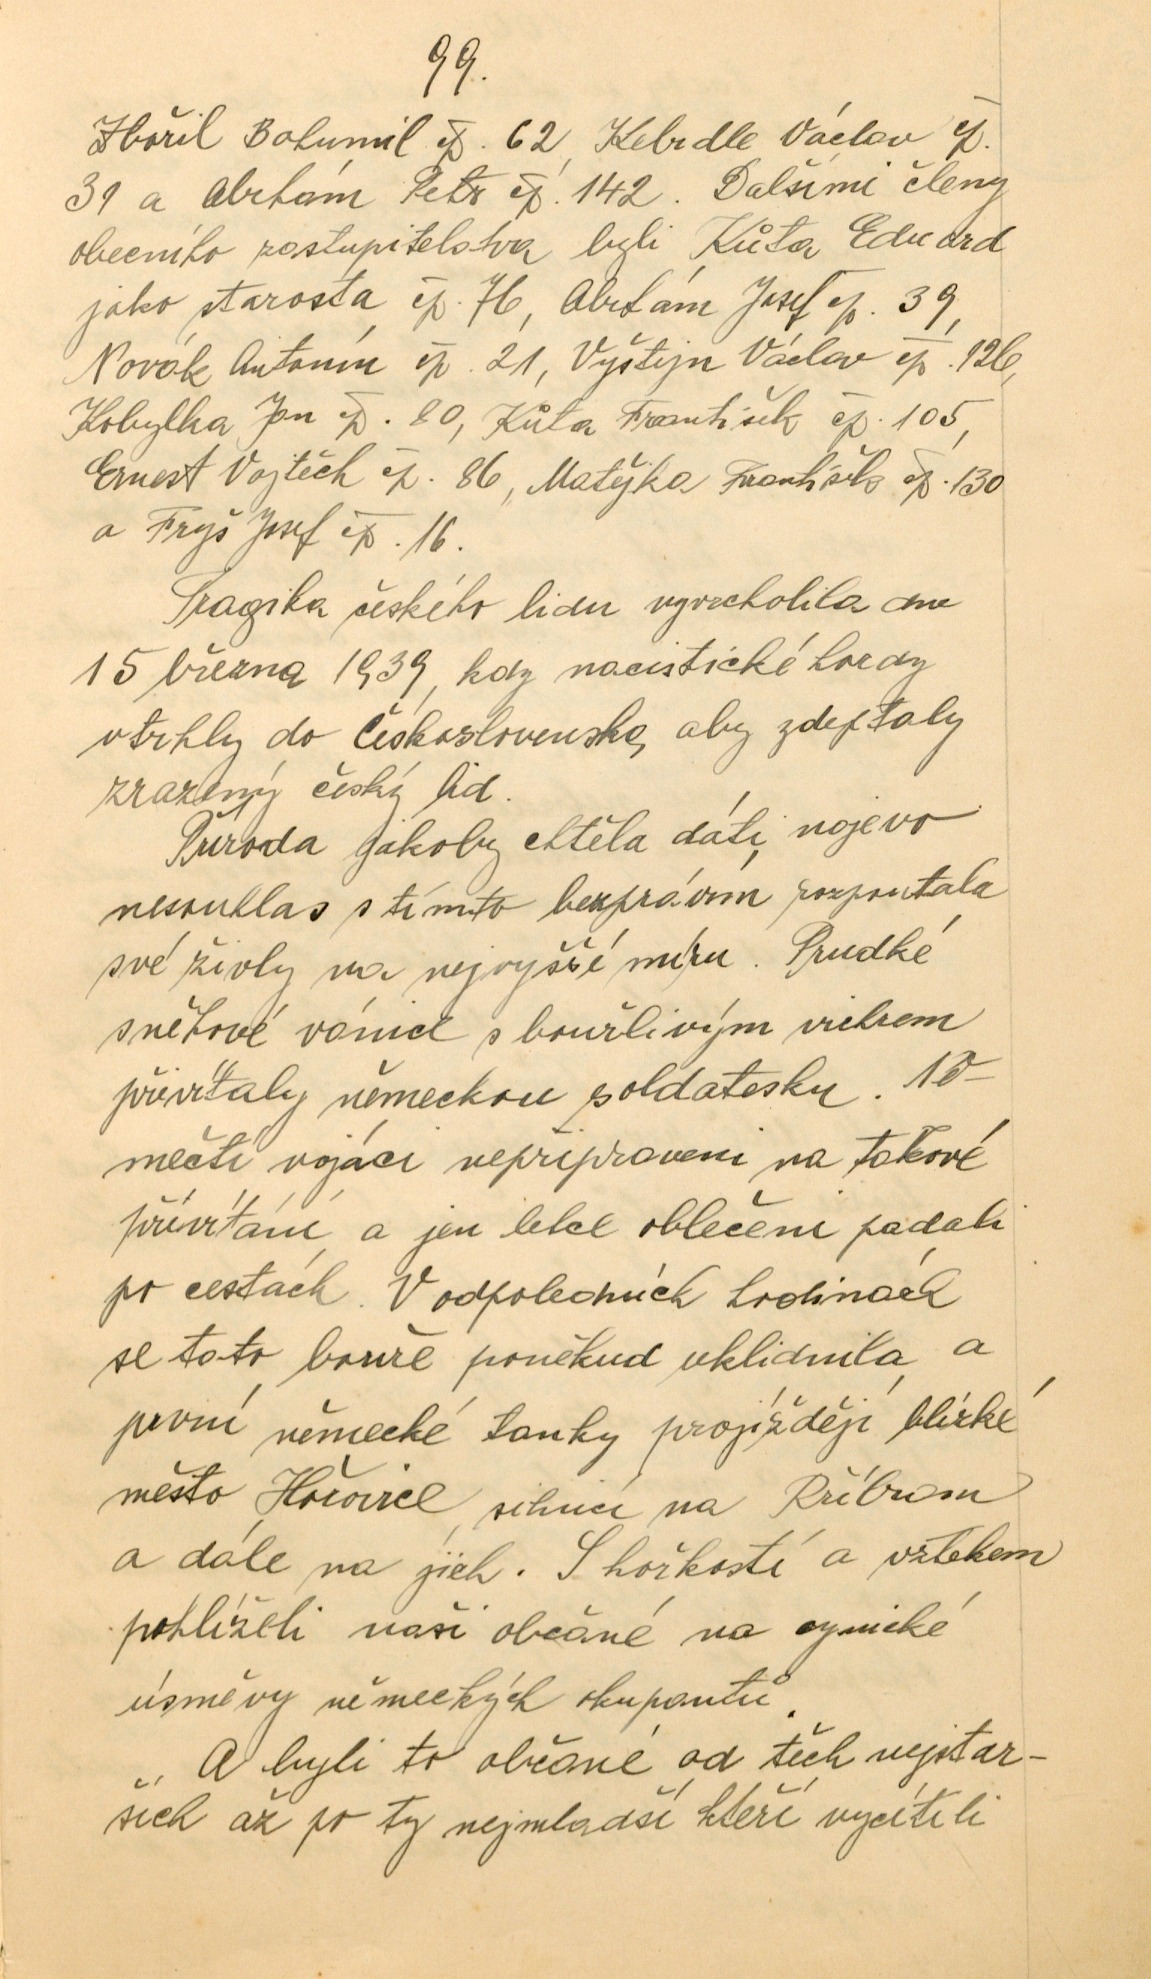 99.
Zbořil Bohumil čp. 62, Kebrdle Václav čp.
39 a Abrhám Petr čp. 142. Dalšími členy
obecního zastupitelstva byli Kůta Eduard
jako starosta čp. 76, Abrhám Josef čp. 39,
Novák Antonín čp. 21, Vyštejn Václav čp. 126,
Kobylka Jan čp. 80, Kůta František čp. 105,
Ernest Vojtěch čp. 86, Matějka František čp. 130
a Fryš Josef čp. 16.
Tragika českého lidu vyvrcholila dne
15 března 1939, kdy nacistické hordy
vtrhly do Československa, aby zdeptaly
zrazený český lid.
Příroda jakoby chtěla dáti najevo
nesouhlas s tímto bezprávím rozpoutala
své živly na nejvyšší míru. Prudké
sněhové vánice s bouřlivým vichrem
přivítaly německou soldatesku. Ně-
mečtí vojáci nepřipraveni na takové
přivítání a jen lehce oblečeni padali
po cestách. V odpoledních hodinách
se tato bouře poněkud uklidnila a
první německé tanky projíždějí blízké
město Hořovice, silnicí na Příbram
a dále na jich. S hořkostí a vztekem
pohlíželi naši občané na cynické
úsměvy německých okupantů.
A byli to občané od těch nejstar-
ších až po ty nejmladší kteří vycítili